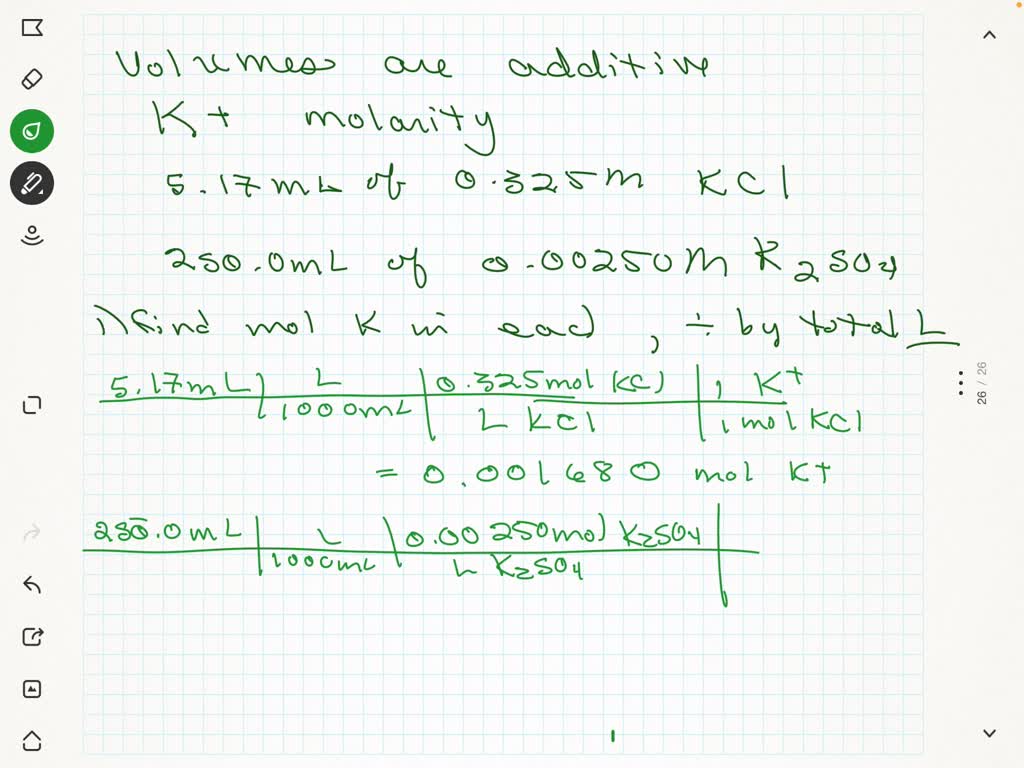 Volumes are additive
K+ molarity
5.17mL of 0.325M KCl
250.0mL of 0.00250M K2SO4
1) find mol K in each, ÷ by total L
5.17mL | L | 0.325mol KCl | 1 K+
1000mL | L KCl | 1 mol KCl
= 0.001680 mol K+
250.0mL | L | 0.00250mol K2SO4 |
1000mL | L K2SO4
26 / 26